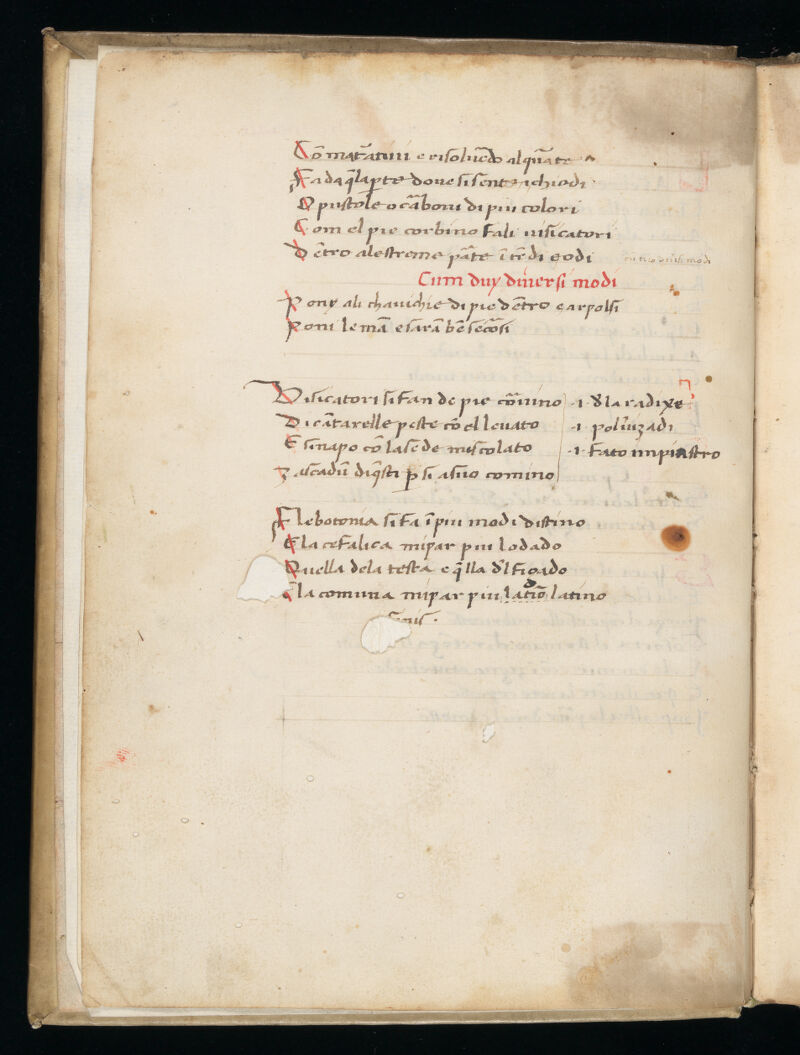 Cō maturatiui e risoluēdo alquāte
Fa da q̄la ꝑte doue si sente i chiodi
O pustole o cāboni di piu colori
Com el pie corbino fali uisicatori
Dētro alestreme pāte e godi
Cum duy diuersi modi
Pony ali chauichie di pie dētro e arpolsi
Poni le mā e sarā bē secōsi
Visicatori si fan de pie cōruino ·i· dla radixe
Di cātarelle peste cō el leuato ·i· poluizadi
E sinapo cō lasede miscolato ·i· fato inpiastro
Zascadū di q̄sti ꝑ si asuo comino
Flebotomia si fa ī piu modi distino
E la cefalica mipar piu lodado
Quella dela testa e q̄lla dl figado
E la comuna mipar piu latino
finis ·